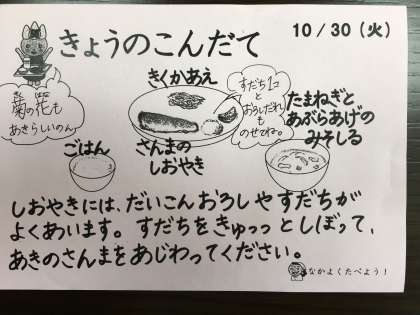 きょうのこんだて
10/30(火)
菊の花も
あきらしいのん
きくかあえ
すだち1コ
と
おろしだれ
も
のせてね。
たまねぎと
あぶらあげの
みそしる
ごはん
さんまの
しおやき
しおやきには、だいこんおろしやすだちが
よくあいます。すだちをきゅっっとしぼって、
あきのさんまをあじわってください。
なかよくたべよう!